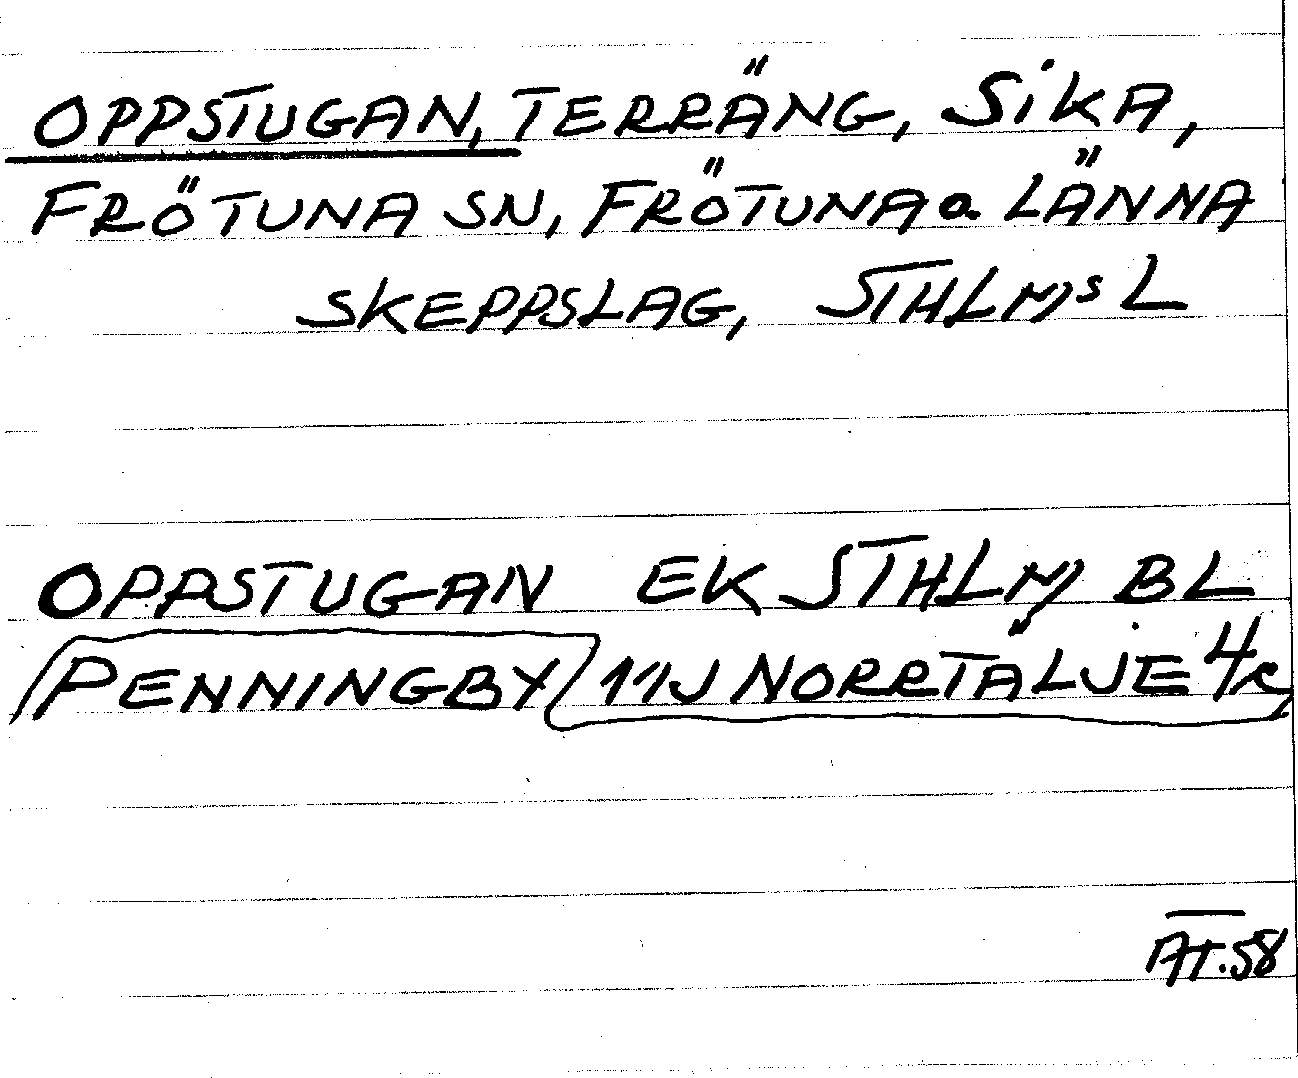 OPPSTUGAN, TERRÄNG, SIKA,
FRÖTUNA SN, FRÖTUNA o. LÄNNA
SKEPPSLAG, STHLMS L
OPPSTUGAN EK STHLM BL
PENNINGBY 11J NORRTÄLJE 4
AT.58